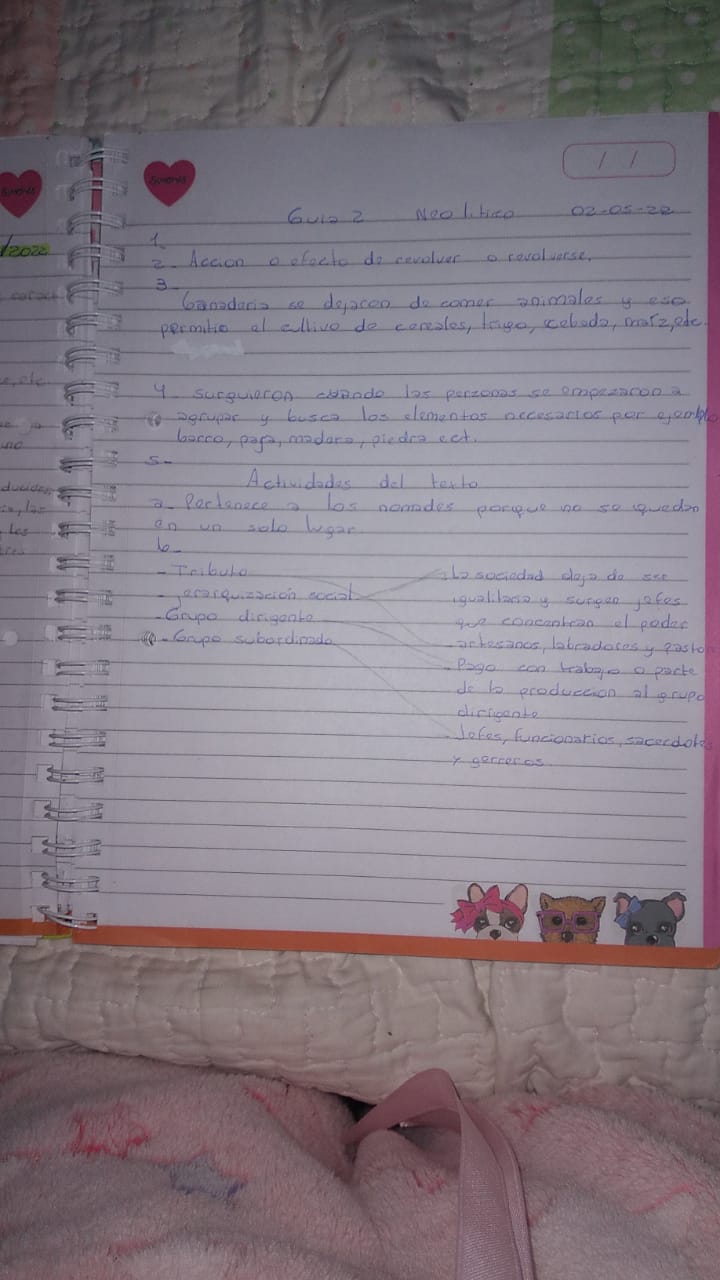 /2022
/ /
Guia 2 Neolitico 02-05-22
1.
2- Accion o efecto de revolver o revolverse.
3-
Ganaderia se dejaron de comer animales y eso
permitio el cultivo de cereales, trigo, cebada, maíz, etc.
4- surguieron cuando las personas se empezaron a
agrupar y busca los elementos necesarios por ejemplo
barro, paja, madera, piedra ect.
5-
Actividades del texto
a- Pertenece a los nomades porque no se quedan
en un solo lugar.
b-
- Tributo
- jerarquización social
- Grupo dirigente
- Grupo subordinado.
- La sociedad deja de ser
igualitaria y surgen jefes
que concentran el poder
- artesanos, labradores y pastor
- Pago con trabajo o parte
de la produccion al grupo
dirigente
- Jefes, funcionarios, sacerdotes
y gerreros.